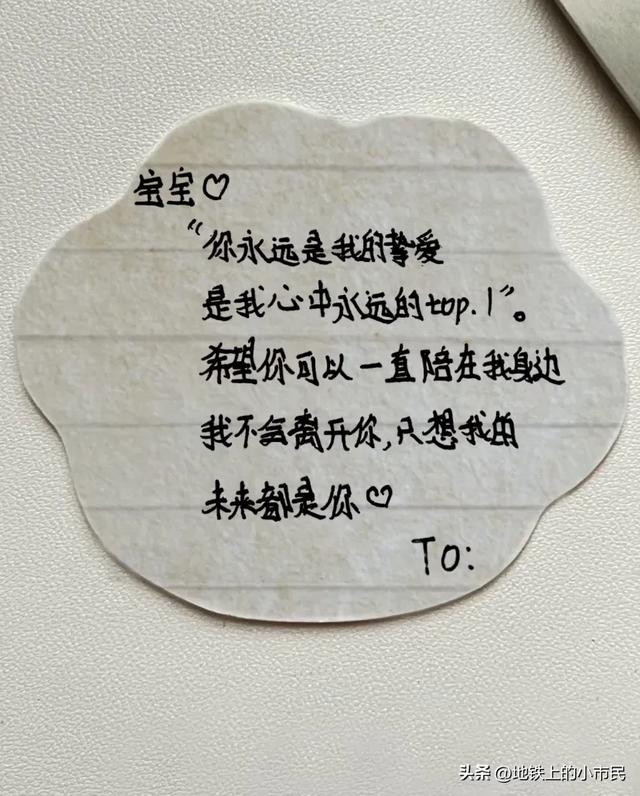 宝宝♡
“你永远是我的挚爱
是我心中永远的top.1”。
希望你可以一直陪在我身边
我不会离开你,只想我的
未来都是你♡
TO:
头条 @地铁上的小市民